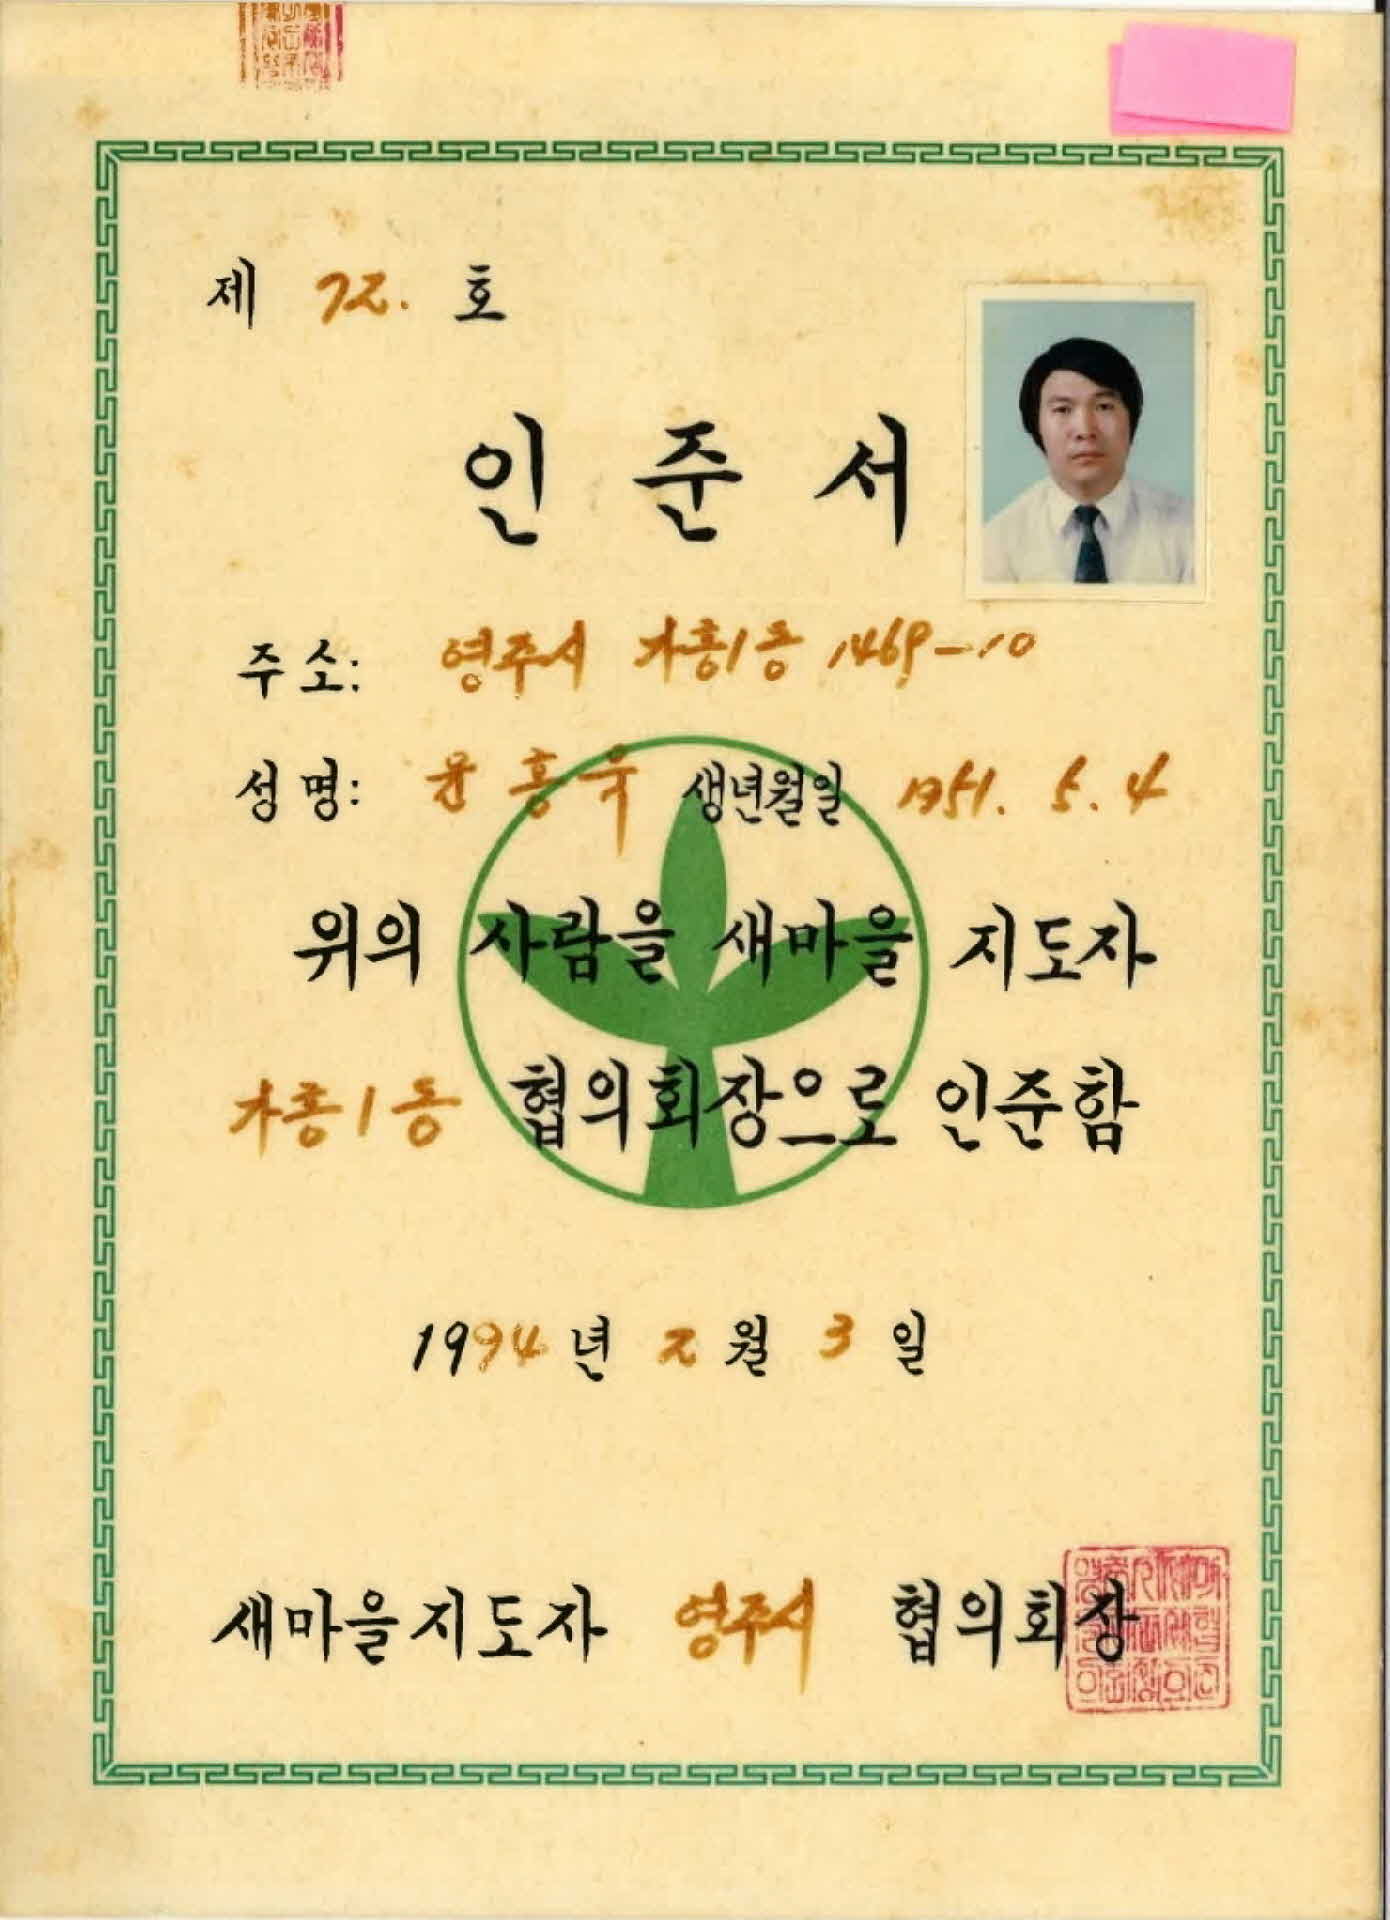 제 72. 호
인준서
주소: 영주시 가흥1동 1469-10
성명: 윤흥욱 생년월일 1951. 5. 4
위의 사람을 새마을 지도자
가흥1동 협의회장으로 인준함
1994년 2월 3일
새마을지도자 영주시 협의회장